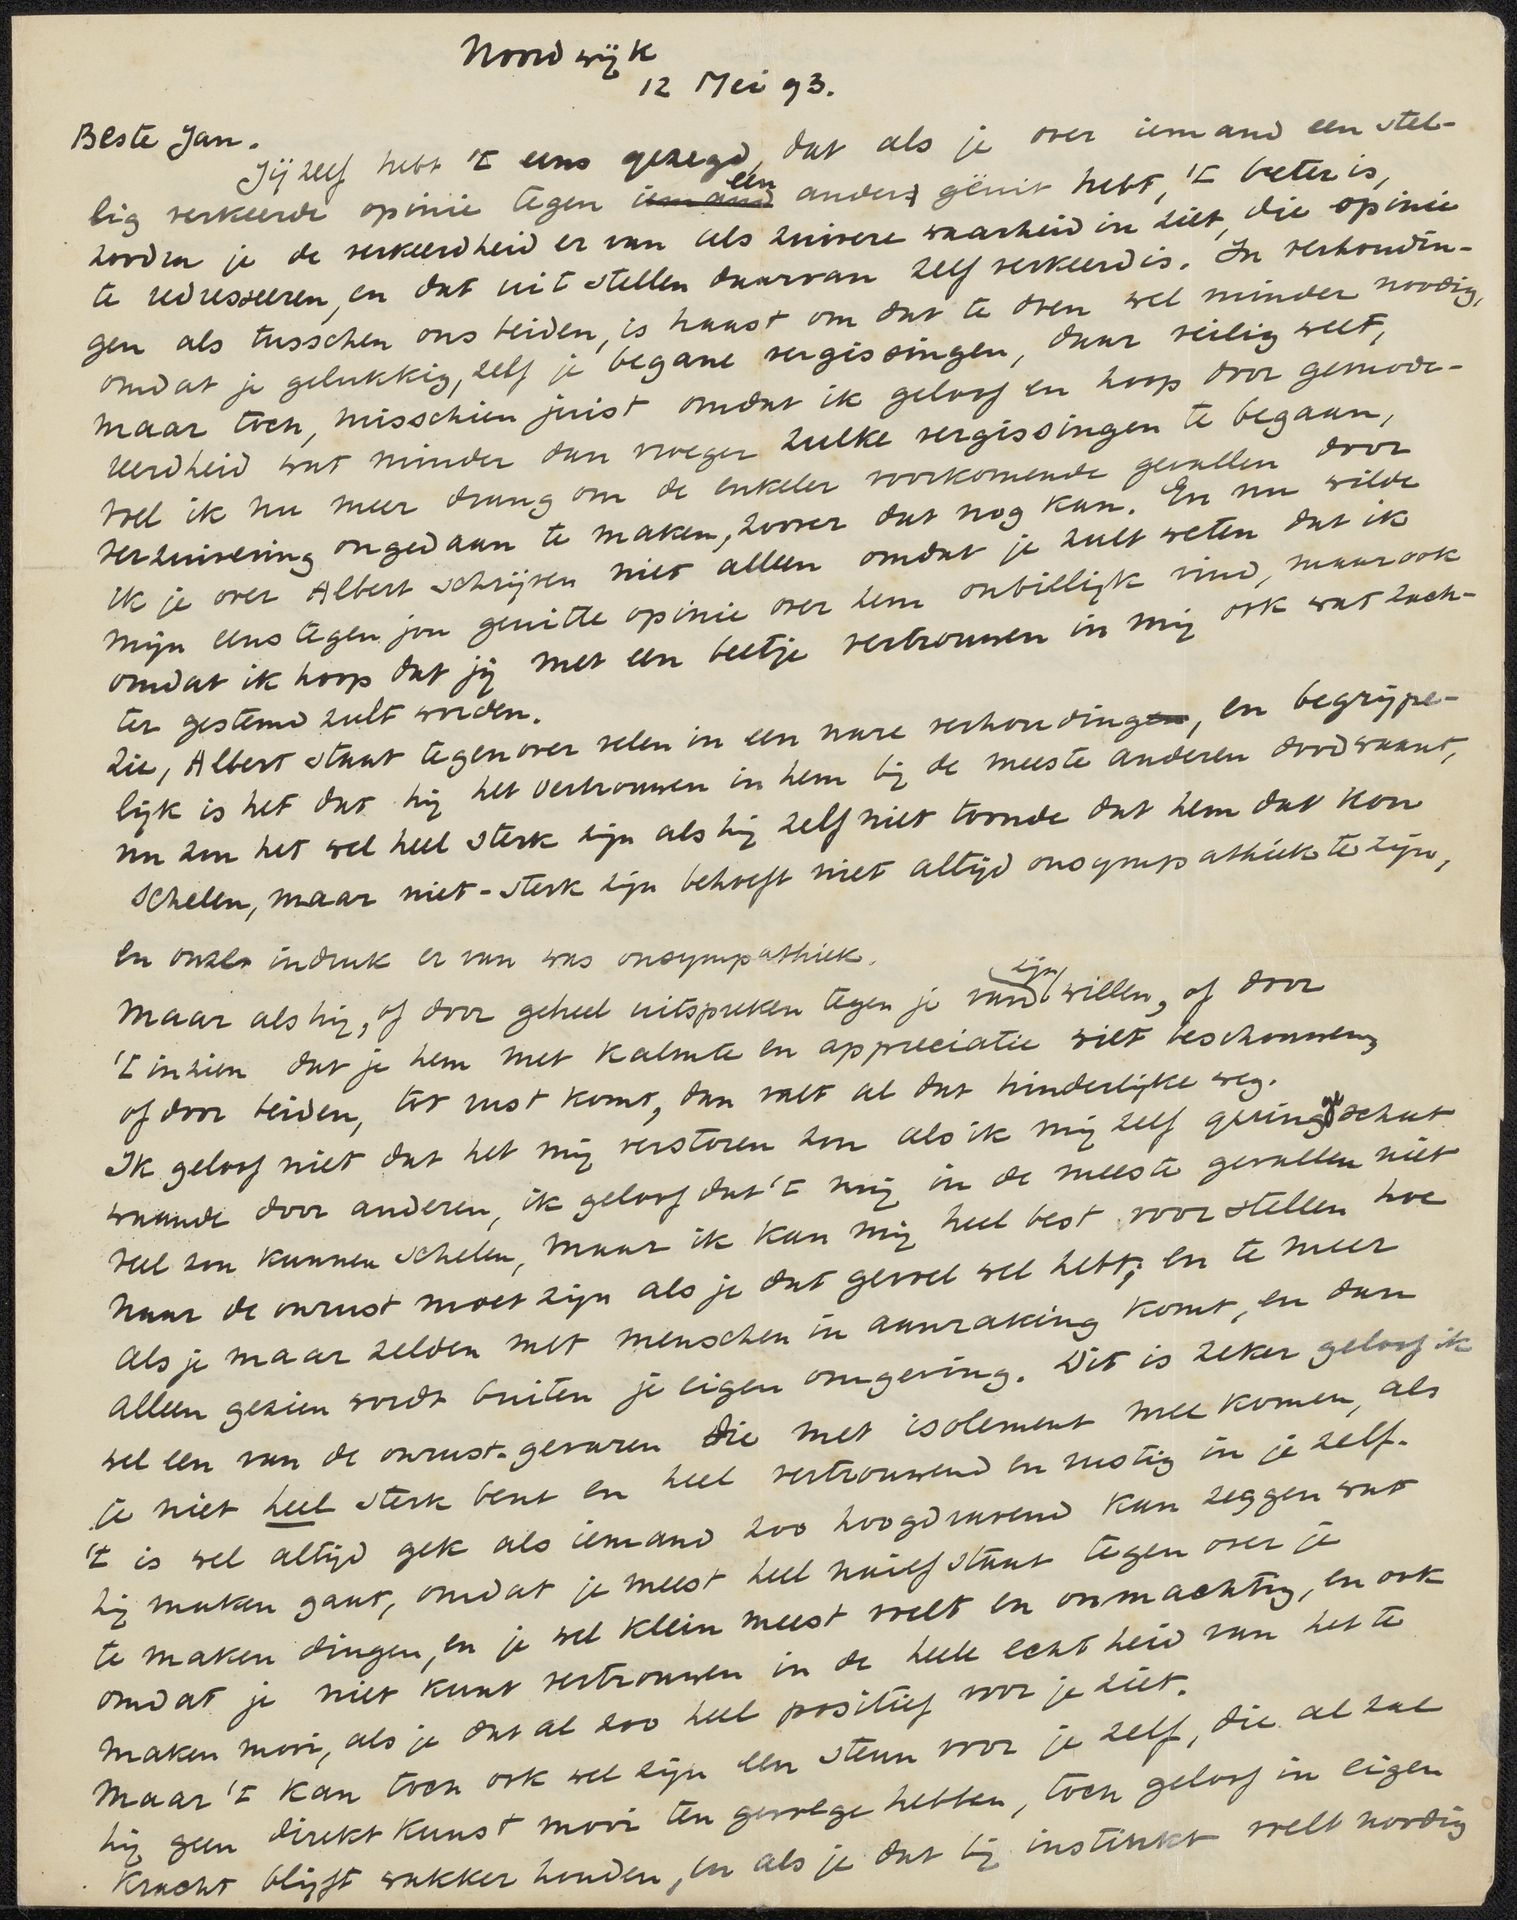 Noordwijk
12 Mei 93.
Beste Jan.
Jij zelf hebt 't eens gezegd, dat als je over iemand een stel-
lig verkeerde opinie tegen iemand een ander geuit hebt, 't beter is,
zoodra je de verkeerdheid er van als zuivere waarheid in ziet, die opinie
te redresseeren, en dat uit stellen daarvan zelf verkeerd is. In verhoudin-
gen als tusschen ons beiden, is haast om dat te doen wel minder noodig,
omdat je gelukkig, zelf je begane vergissingen, daar veilig weet,
maar toch, misschien juist omdat ik geloof en hoop door gemode-
reerdheid wat minder dan vroeger zulke vergissingen te begaan,
voel ik nu meer drang om de enkeler voorkomende gevallen door
verzuivering ongedaan te maken, zoover dat nog kan. En nu wilde
ik je over Albert schrijven niet alleen omdat je zult weten dat ik
mijn eens tegen jou geuitte opinie over hem onbillijk vind, maar ook
omdat ik hoop dat jij met een beetje vertrouwen in mij ook wat zach-
ter gestemd zult worden.
Zie, Albert staat tegenover velen in een nare verhoudingen, en begrijpe-
lijk is het dat hij het vertrouwen in hem bij de meeste anderen dood waant,
nu zou het wel heel sterk zijn als hij zelf niet toonde dat hem dat kon
schelen, maar niet-sterk zijn behoeft niet altijd onsympathiek te zijn,
en onze indruk er van was onsympathiek.
Maar als hij, of door geheel uitspreken tegen je van zijn willen, of door
't inzien dat je hem met kalmte en appreciatie wilt beschouwen,
of door beiden, tot rust komt, dan valt al dat hinderlijke weg.
Ik geloof niet dat het mij verstoren zou als ik mij zelf gering geschat
waande door anderen, ik geloof dat 't mij in de meeste gevallen niet
veel zou kunnen schelen, maar ik kan mij heel best voorstellen hoe
naar de onrust moet zijn als je dat gevoel wel hebt; en te meer
als je maar zelden met menschen in aanraking komt, en dan
alleen gezien wordt buiten je eigen omgeving. Dit is zeker geloof ik
wel een van de onrust-gevaren die met isolement mee komen, als
je niet heel sterk bent en heel vertrouwend en rustig in je zelf.
't is wel altijd gek als iemand zoo hoogdravend kan zeggen wat
hij maken gaat, omdat je meest heel naief staat tegen over je
te maken dingen, en je wel klein meest voelt en onmachtig, en ook
omdat je niet kunt vertrouwen in de heele echtheid van het te
maken mooi, als je dat al zoo heel positief voor je ziet.
Maar 't kan toch ook wel zijn een steun voor je zelf, die al zal
hij geen direkt kunst mooi ten gevolge hebben, toch geloof in eigen
kracht blijft wakker houden, en als je dat bij instinkt voelt noodig